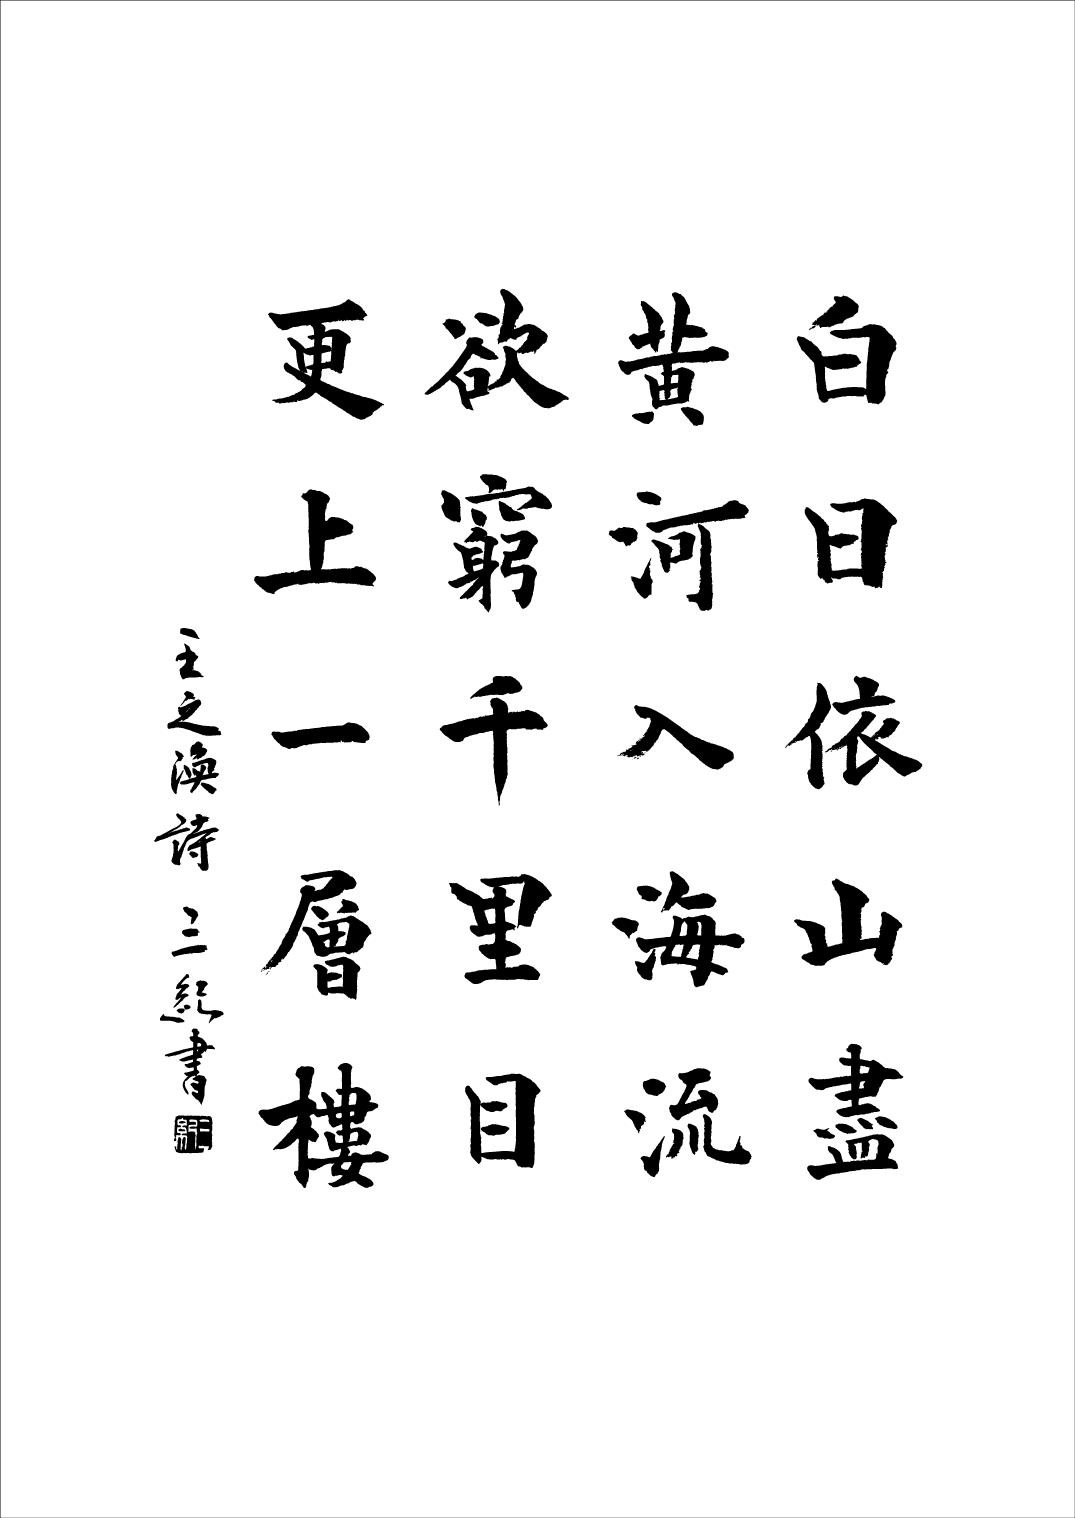 白日依山盡
黄河入海流
欲窮千里目
更上一層樓
王之渙詩 三紀書